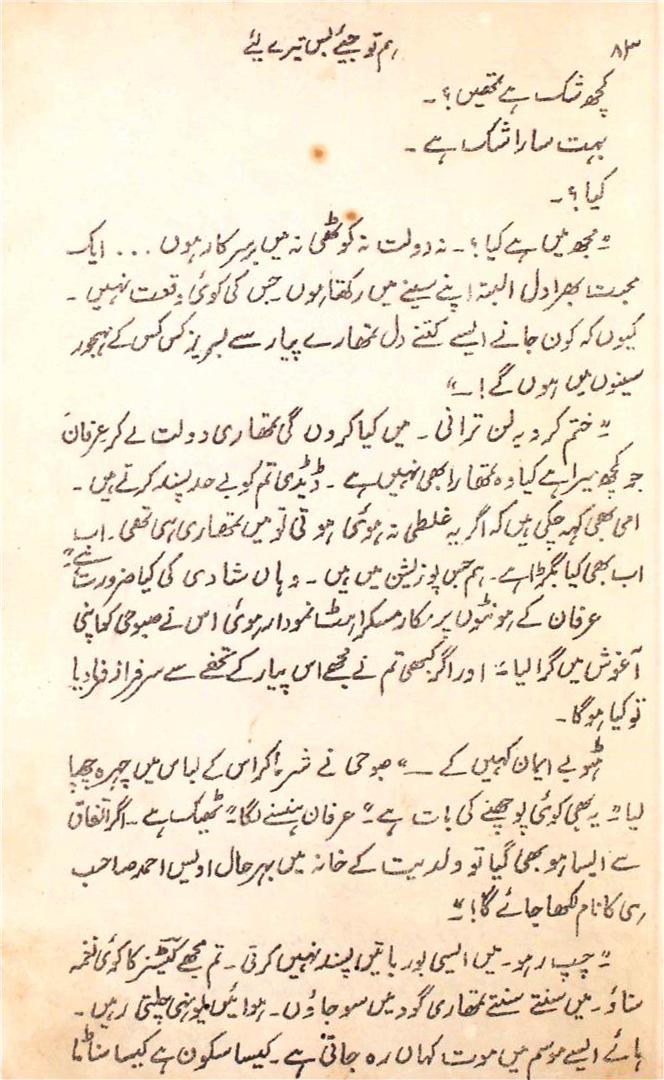 ۸۳ ہم تو جیئے بس تیرے لئے
کچھ شک ہے تمھیں؟۔
بہت سارا شک ہے ۔
کیا؟۔
"مجھ میں ہے کیا؟۔ نہ دولت نہ کوٹھی نہ میں برسرکار ہوں ... ایک
محبت بھرا دل البتہ اپنے سینے میں رکھتا ہوں۔ جس کی کوئی وقعت نہیں ۔
کیوں کہ کون جانے ایسے کتنے دل تمھارے پیار سے لبریز کس کس کے مہجور
سینوں میں ہوں گے!۔"
"ختم کرو یہ لن ترانی ۔ میں کیا کروں گی تمھاری دولت لے کر عرفان
جو کچھ میرا ہے کیا وہ تمھارا بھی نہیں ہے ۔ ڈیڈی تم کو بے حد پسند کرتے ہیں ۔
امی بھی کہہ چکی ہیں کہ اگر یہ غلطی نہ ہوئی ہوتی تو میں تمھاری ہی تھی ۔ اب
اب بھی کیا بگڑا ہے۔ ہم جس پوزیشن میں ہیں ۔ وہاں شادی کی کیا ضرورت ہے"
عرفان کے ہونٹوں پر مکار مسکراہٹ نمودار ہوئی اس نے صبوحی کو اپنی
آغوش میں گرا لیا" اور اگر کبھی تم نے مجھے اس پیار کے تحفے سے سرفراز فرما دیا
تو کیا ہوگا ۔
ہٹو بے ایمان کہیں کے ــ" صبوحی نے شرما کر اس کے لباس میں چہرہ چھپا
لیا" یہ بھی کوئی پوچھنے کی بات ہے" عرفان ہنسنے لگا" ٹھیک ہے۔ اگر اتفاق
سے ایسا ہو بھی گیا تو ولدیت کے خانہ میں بہرحال اویس احمد صاحب
ہی کا نام لکھا جائے گا!"
"چپ رہو۔ میں ایسی بور باتیں پسند نہیں کرتی ۔ تم مجھے کیٹس کا کوئی نغمہ
سناؤ۔ میں سنتے سنتے تمھاری گود میں سو جاؤں ۔ ہوائیں یونہی چلتی رہیں ۔
ہائے ایسے موسم میں موت کہاں رہ جاتی ہے ۔ کیسا سکون ہے کیسا سناٹا